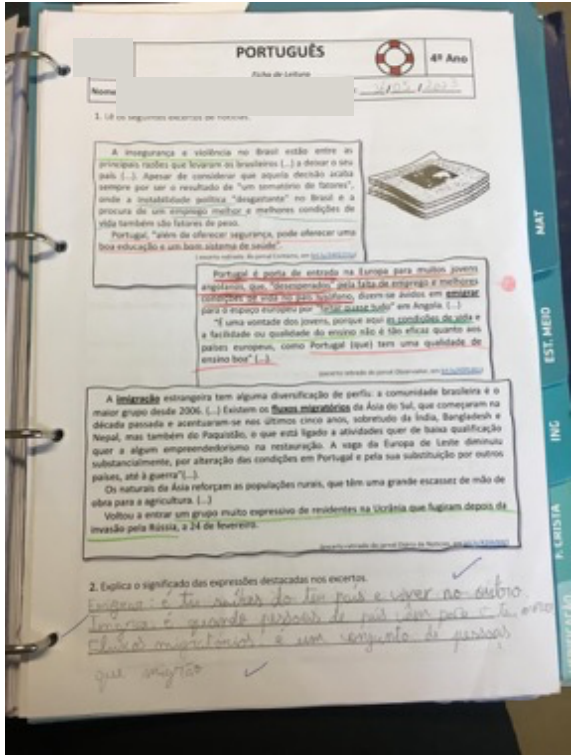 PORTUGUÊS
4º Ano
Ficha de Leitura
Nome
26/05/2023
1. Lê os seguintes excertos de notícias.
A insegurança e violência no Brasil estão entre as
principais razões que levaram os brasileiros (...) a deixar o seu
país (...). Apesar de considerar que aquela decisão acaba
sempre por ser o resultado de "um somatório de fatores",
onde a instabilidade política "desgastante" no Brasil e a
procura de um emprego melhor e melhores condições de
vida também são fatores de peso.
Portugal, "além de oferecer segurança, pode oferecer uma
boa educação e um bom sistema de saúde".
Portugal é porta de entrada na Europa para muitos jovens
angolanos, que, "desesperados" pela falta de emprego e melhores
condições de vida no país lusófono, dizem-se ávidos em emigrar
para o espaço europeu por "faltar quase tudo" em Angola. (...)
"É uma vontade dos jovens, porque aqui as condições de vida e
a facilidade ou qualidade do ensino não é tão eficaz quanto aos
países europeus, como Portugal (que) tem uma qualidade de
ensino boa" (...).
(excerto retirado do jornal Observador, em
A imigração estrangeira tem alguma diversificação de perfis: a comunidade brasileira é o
maior grupo desde 2006. (...) Existem os fluxos migratórios da Ásia do Sul, que começaram na
década passada e acentuaram-se nos últimos cinco anos, sobretudo da Índia, Bangladesh e
Nepal, mas também do Paquistão, o que está ligado a atividades quer de baixa qualificação
quer a algum empreendedorismo na restauração. A vaga da Europa de Leste diminuiu
substancialmente, por alteração das condições em Portugal e pela sua substituição por outros
países, até à guerra"(...).
Os naturais da Ásia reforçam as populações rurais, que têm uma grande escassez de mão de
obra para a agricultura. (...)
Voltou a entrar um grupo muito expressivo de residentes na Ucrânia que fugiram depois da
invasão pela Rússia, a 24 de fevereiro.
(excerto retirado do jornal Diário de Notícias, em
2. Explica o significado das expressões destacadas nos excertos.
Emigrar: é tu saíres do teu país e viver no outro
é quando pessoas de país vêm para o teu
fluxos migratórios: é um conjunto de pessoas
que migrão
MAT
EST. MEIO
ING
F. CRISTÃ